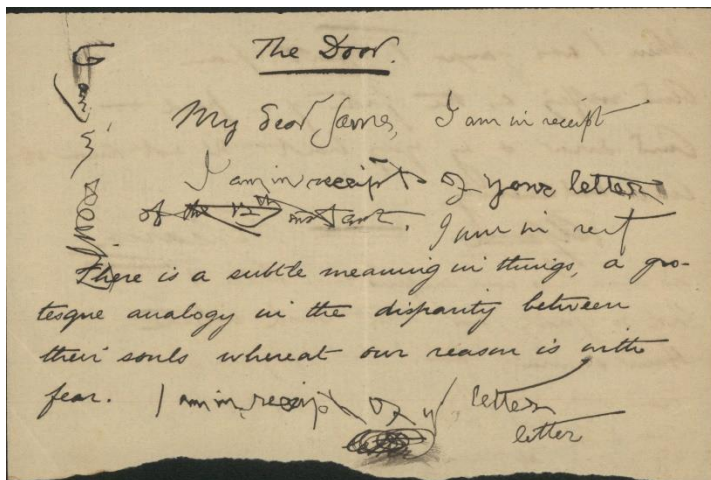 The Door.
My dear James, I am in receipt
I am in receipt of your letter
of the 12th instant. I am in rect
There is a subtle meaning in things, a gro-
tesque analogy in the disparity between
their souls whereat our reason is
fear. I am in receipt of y letter
letter